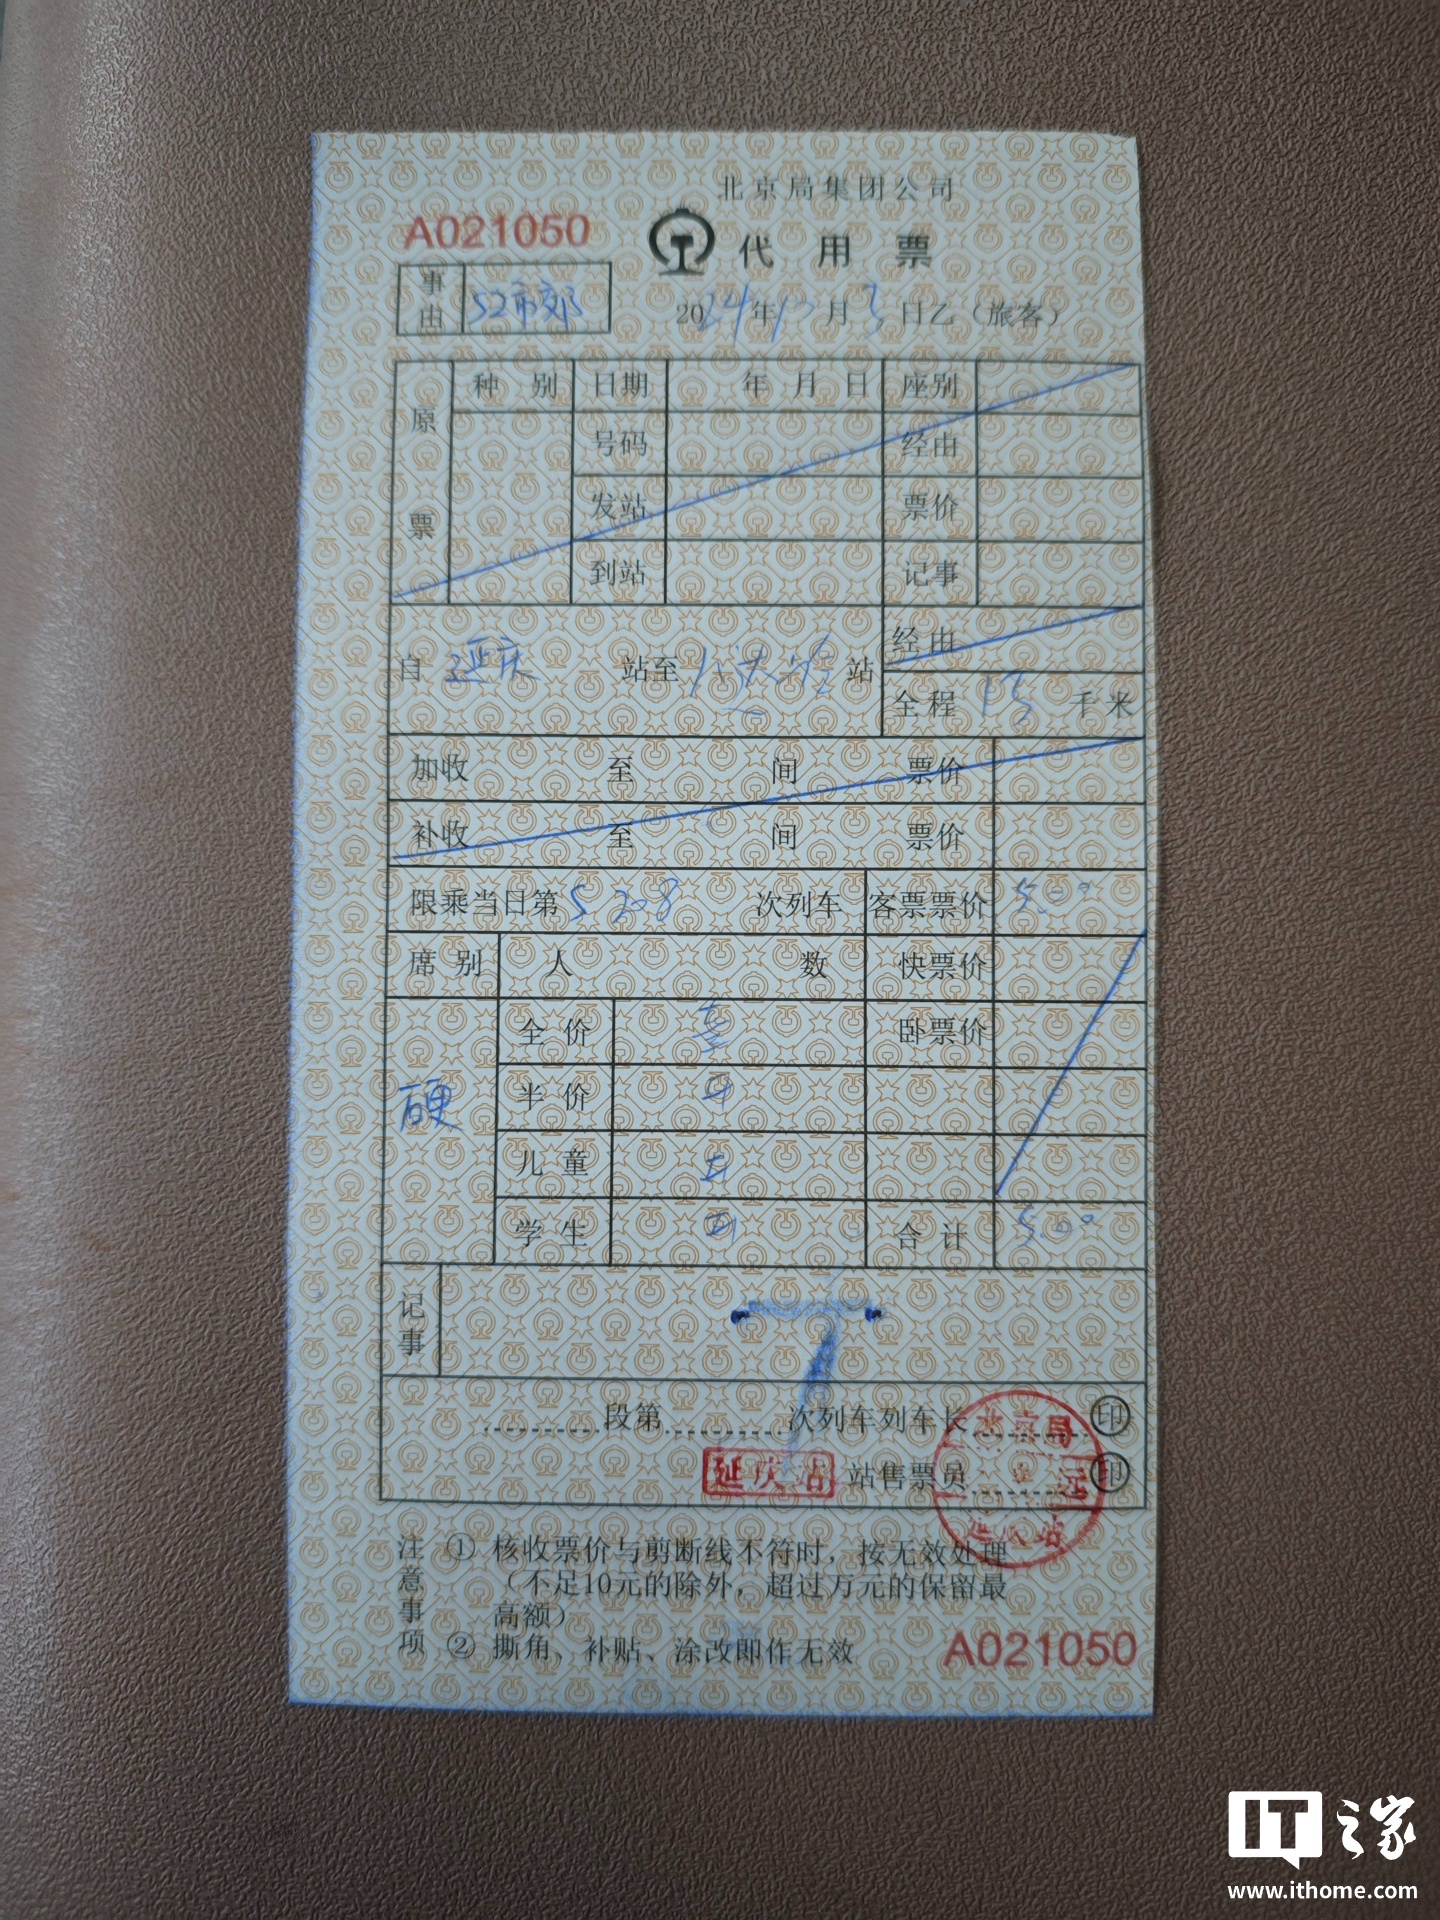 北京局集团公司
A021050
代用票
事由 S2市郊
2024年 月3日乙（旅客）
原票 种别 日期 年月日 座别
号码 经由
发站 票价
到站 记事
自 延庆 站至 八达岭 站 经由
全程 13 千米
加收 至 间 票价
补收 至 间 票价
限乘当日第 S208 次列车 客票票价 5.00
席别 人数 快票价
硬 全价 壹 卧票价
半价
儿童
学生 合计 5.00
记事
段第 次列车列车长 印
延庆站 站售票员 印
延庆站
注意事项 ① 核收票价与剪断线不符时，按无效处理
（不足10元的除外，超过万元的保留最
高额）
② 撕角、补贴、涂改即作无效
A021050
IT之家
www.ithome.com